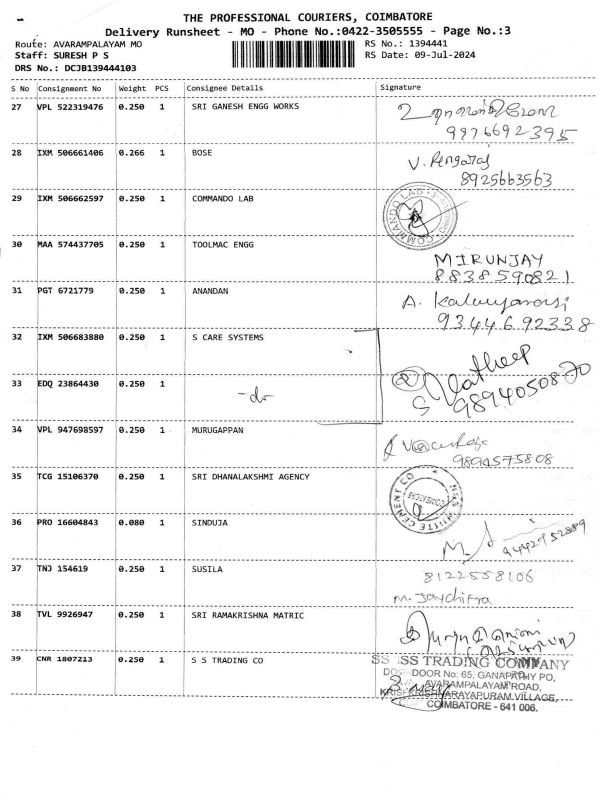 THE PROFESSIONAL COURIERS, COIMBATORE
Delivery Runsheet - MO - Phone No.:0422-3505555 - Page No.:3
Route: AVARAMPALAYAM MO
RS No.: 1394441
Staff: SURESH P S
RS Date: 09-Jul-2024
DRS No.: DCJB139444103
S No Consignment No Weight PCS Consignee Details Signature
27 VPL 522319476 0.250 1 SRI GANESH ENGG WORKS
9876692395
28 IXM 506661406 0.266 1 BOSE
V. Rengaraj
8925663563
29 IXM 506662597 0.250 1 COMMANDO LAB
COMMANDO LAB
30 MAA 574437705 0.250 1 TOOLMAC ENGG
MIRUNJAY
8838590821
31 PGT 6721779 0.250 1 ANANDAN
A.
9344692338
32 IXM 506683880 0.250 1 S CARE SYSTEMS
33 EDQ 23864430 0.250 1 -do-
9894050870
34 VPL 947698597 0.250 1 MURUGAPPAN
9894575808
35 TCG 15106370 0.250 1 SRI DHANALAKSHMI AGENCY
WHITE CEMENT CO
36 PRO 16604843 0.080 1 SINDUJA
9442952889
37 TNJ 154619 0.250 1 SUSILA
8122558106
M. Jaychitra
38 TVL 9926947 0.250 1 SRI RAMAKRISHNA MATRIC
39 CNR 1807213 0.250 1 S S TRADING CO
SS TRADING COMPANY
DOOR No: 65, GANAPATHY PO,
AVARAMPALAYAM ROAD,
KRISHNARAYAPURAM VILLAGE,
COIMBATORE - 641 006.